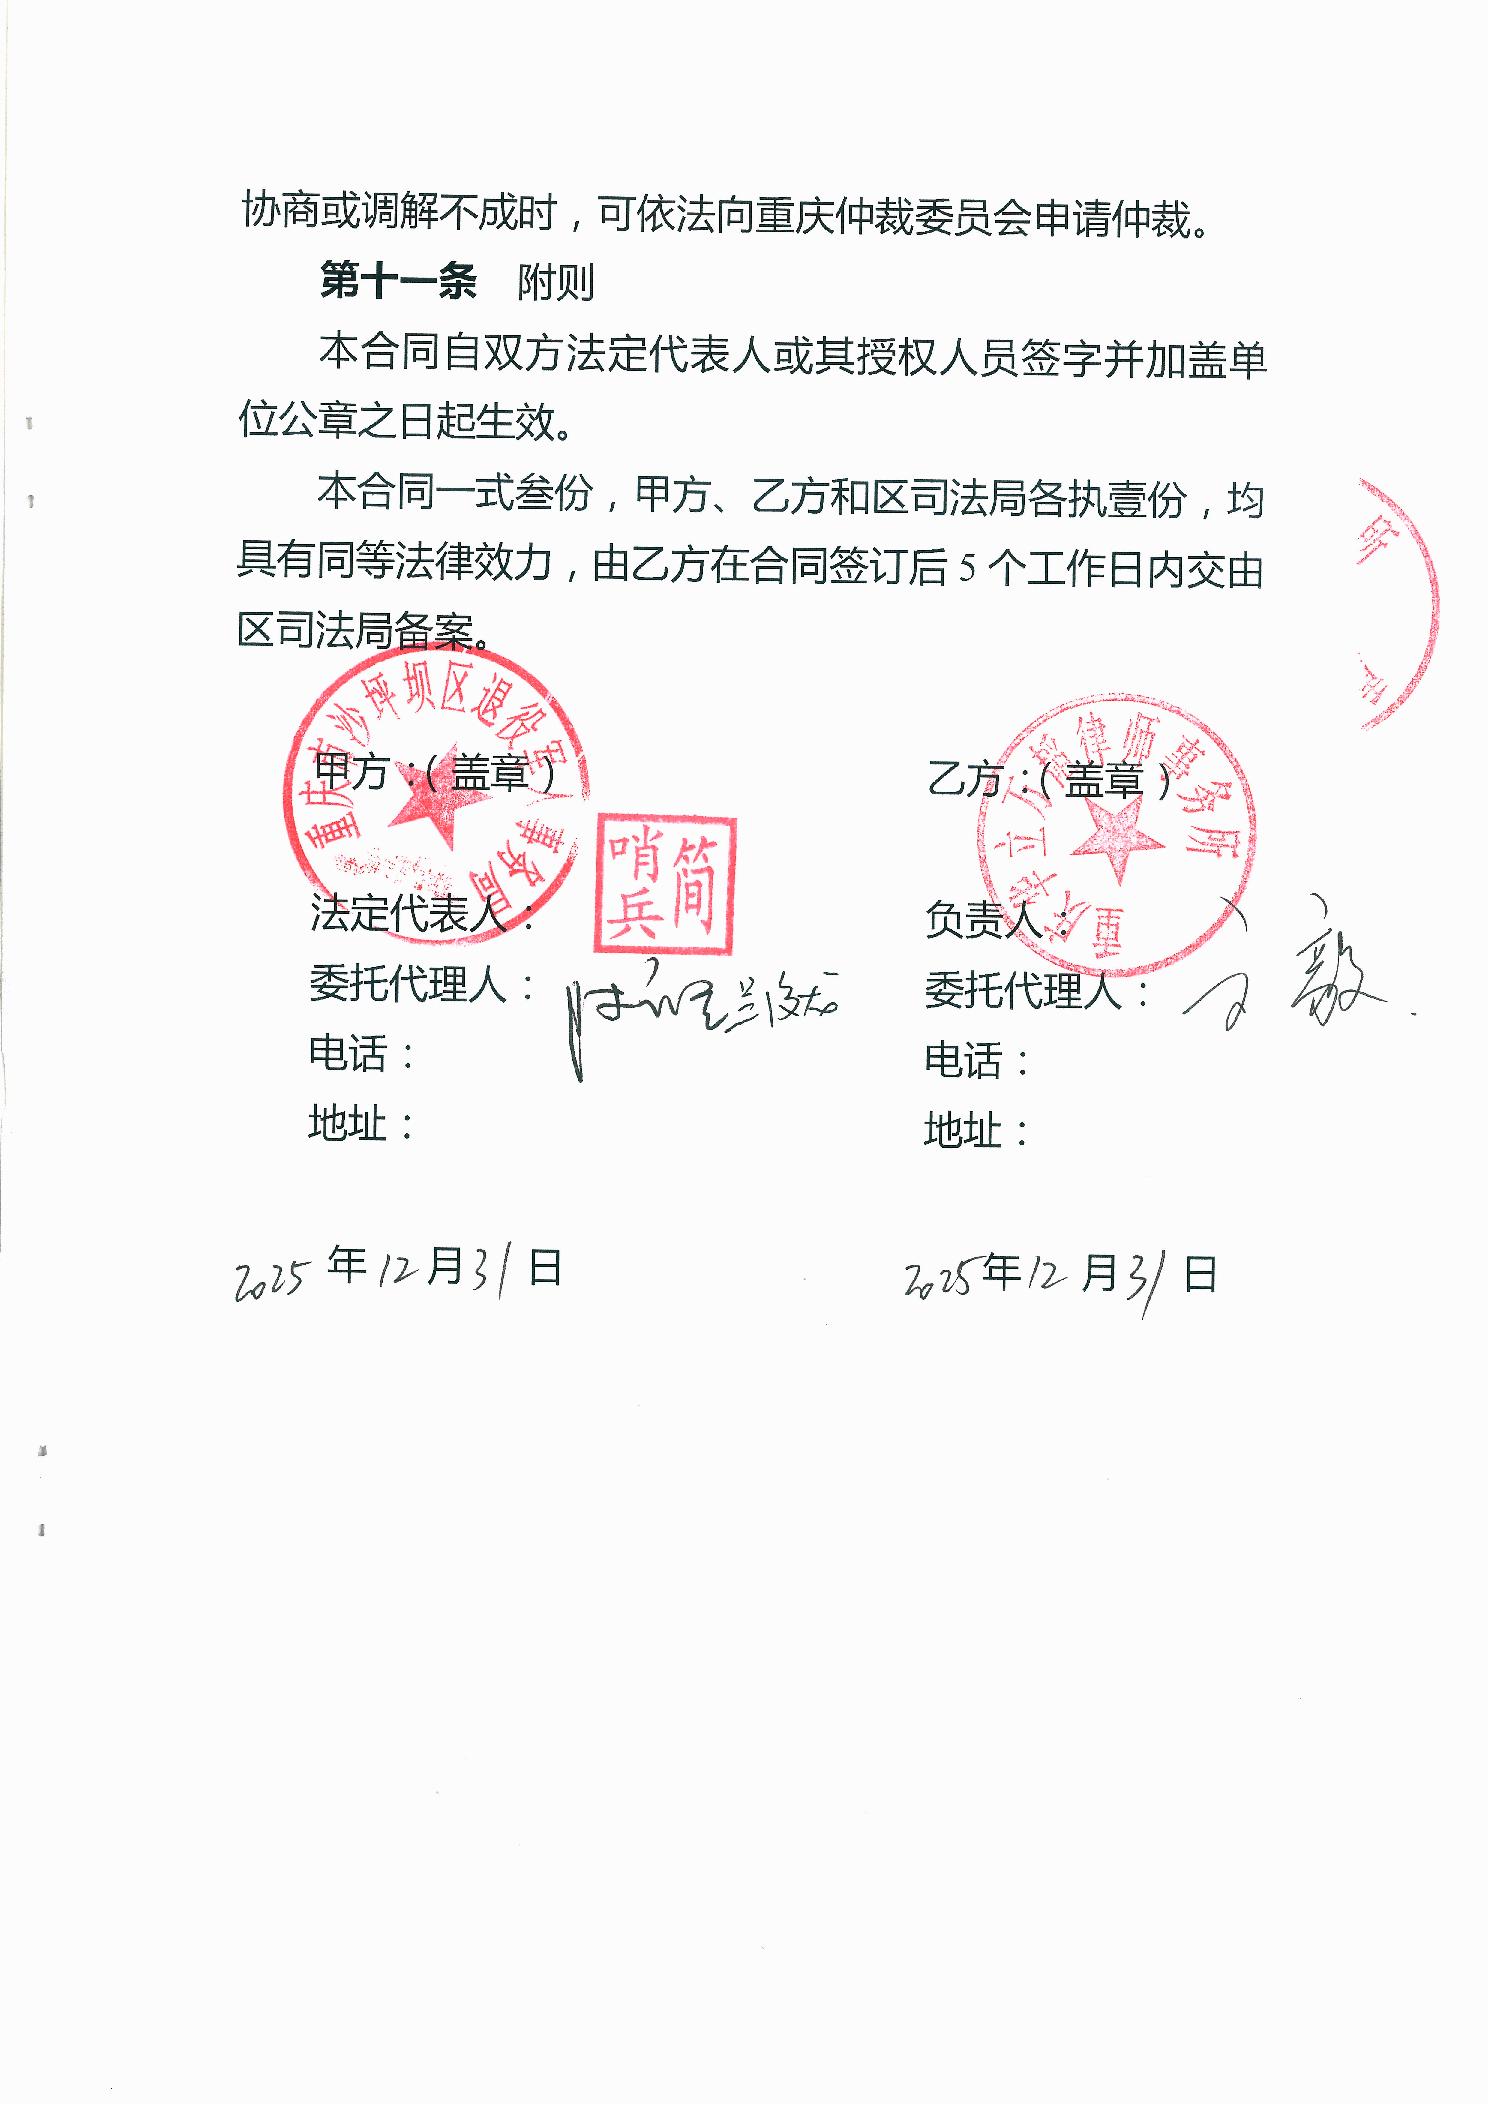 协商或调解不成时，可依法向重庆仲裁委员会申请仲裁。
第十一条 附则
本合同自双方法定代表人或其授权人员签字并加盖单
位公章之日起生效。
本合同一式叁份，甲方、乙方和区司法局各执壹份，均
具有同等法律效力，由乙方在合同签订后5个工作日内交由
区司法局备案。
重庆市沙坪坝区退役军人事务局
甲方：（盖章）
乙方：（盖章）
律师事务所
简哨兵
法定代表人：
负责人：
委托代理人：
委托代理人：
电话：
电话：
地址：
地址：
2025年12月31日
2025年12月31日